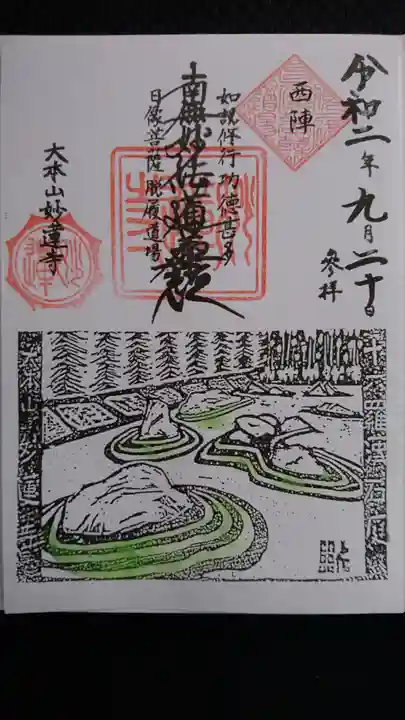 令和二年九月二十日
参拝
西陣
如説修行功徳甚多
南無妙法蓮華経
日像菩薩脱履道場
大本山妙蓮寺
十六羅漢石庭
大本山妙蓮寺